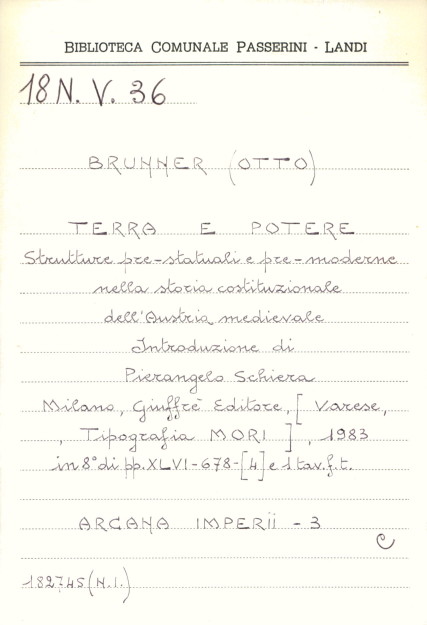 BIBLIOTECA COMUNALE PASSERINI - LANDI
18 N. V. 36
BRUNNER (OTTO)
TERRA E POTERE
Strutture pre-statuali e pre-moderne
nella storia costituzionale
dell'Austria medievale
Introduzione di
Pierangelo Schiera
Milano, Giuffrè Editore, [ Varese,
, Tipografia MORI ] , 1983
in 8° di pp. XLVI-678-[4] e 1 tav. f. t.
ARCANA IMPERII - 3
C
182745 (N.I.)